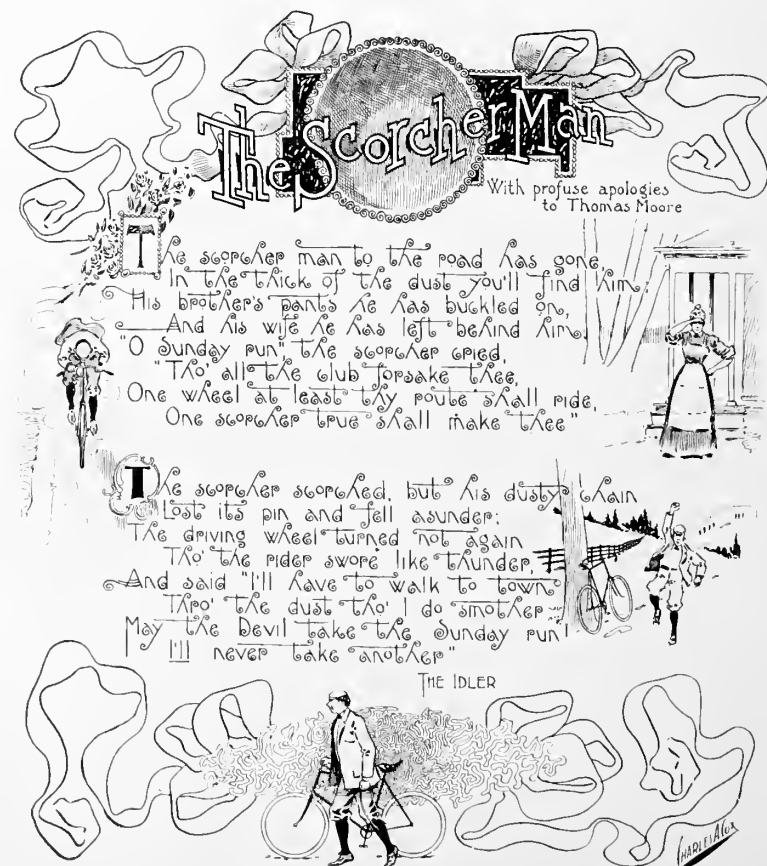 The Scorcher Man
With profuse apologies
to Thomas Moore
The scorcher man to the road has gone,
In the thick of the dust you'll find him;
His brother's pants he has buckled on,
And his wife he has left behind him.
"O Sunday run" the scorcher cried,
"Tho' all the club forsake thee,
One wheel at least thy route shall ride,
One scorcher true shall make thee"
The scorcher scorched, but his dusty chain
Lost its pin and fell asunder;
The driving wheel turned not again
Tho' the rider swore like thunder,
And said "I'll have to walk to town
Thro' the dust tho' I do smother
May the Devil take the Sunday run!
I'll never take another"
THE IDLER
CHARLES A COX